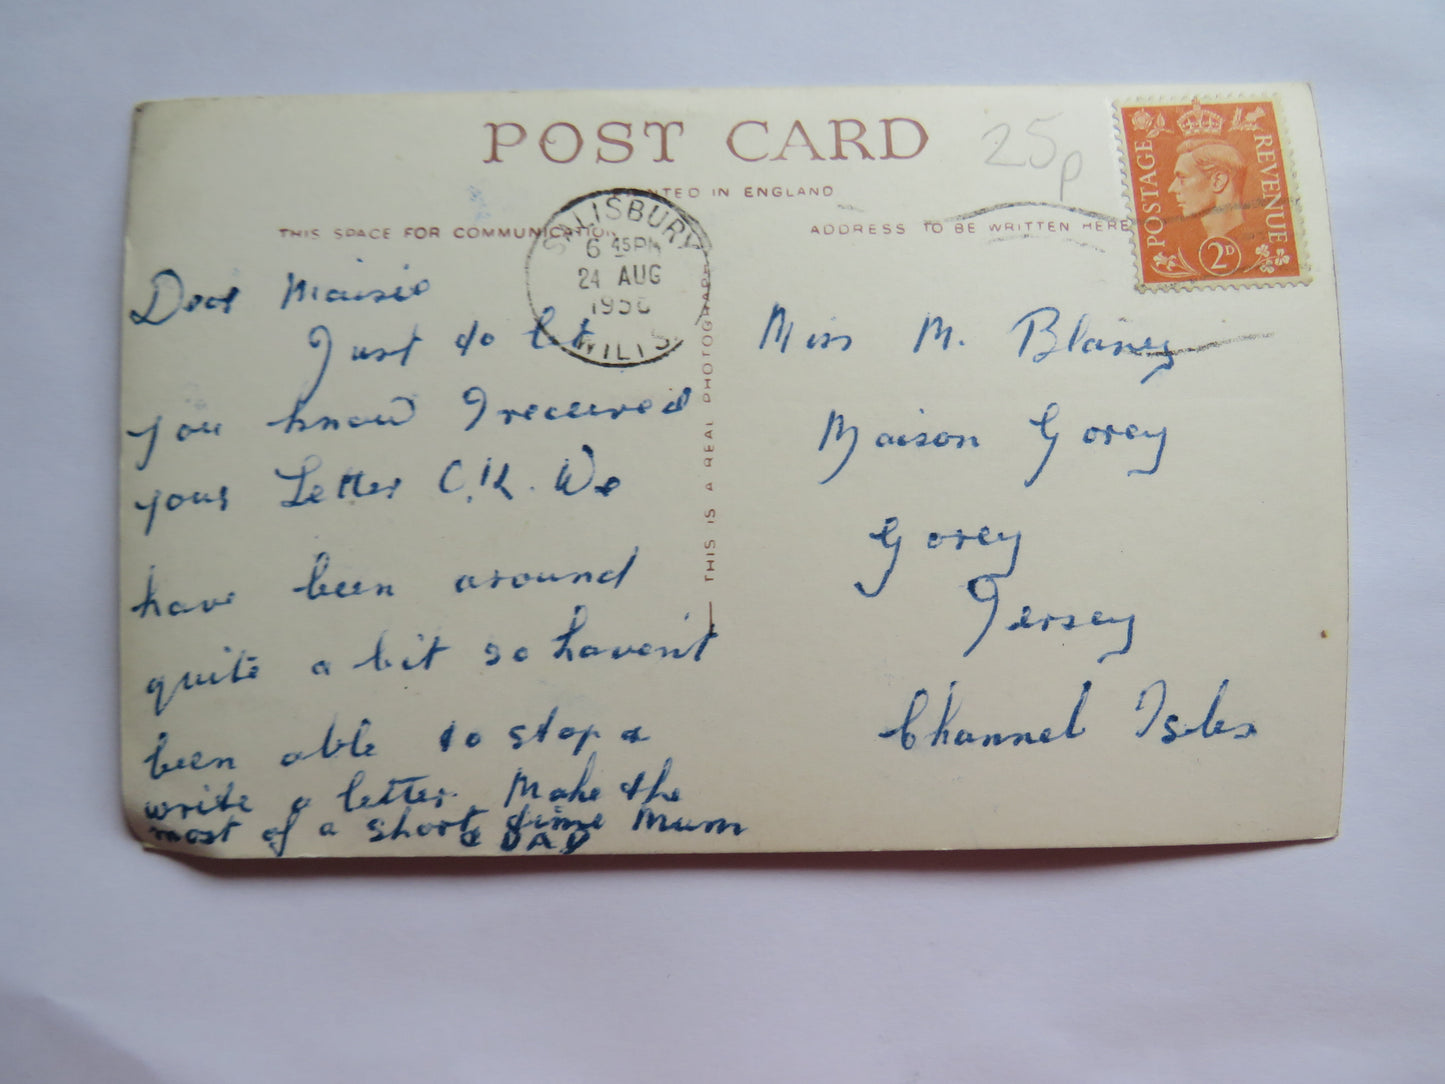 POST CARD
25p
PRINTED IN ENGLAND
THIS SPACE FOR COMMUNICATION
ADDRESS TO BE WRITTEN HERE
SALISBURY
6 45PM
24 AUG
WILTS.
POSTAGE
REVENUE
2D
THIS IS A REAL PHOTOGRAPH
Dear Maisie
Just to let
you know I received
your Letter O.K. We
have been around
quite a bit so haven't
been able to stop &
write a letter. Make the
most of a short time Mum
& DAD
Miss M. Blaney
Maison Gorey
Gorey
Jersey
Channel Isles